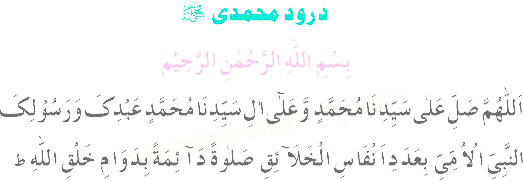 درود محمدی ﷺ
بِسْمِ اللهِ الرَّحْمٰنِ الرَّحِيْمِ
اَللّٰهُمَّ صَلِّ عَلٰى سَيِّدِنَا مُحَمَّدٍ وَّعَلٰٓى اٰلِ سَيِّدِنَا مُحَمَّدٍ عَبْدِكَ وَرَسُوْلِكَ
النَّبِيِّ الْاُمِّيِّ بِعَدَدِ اَنْفَاسِ الْخَلَآئِقِ صَلٰوةً دَآئِمَةً بِدَوَامِ خَلْقِ اللهِ ط